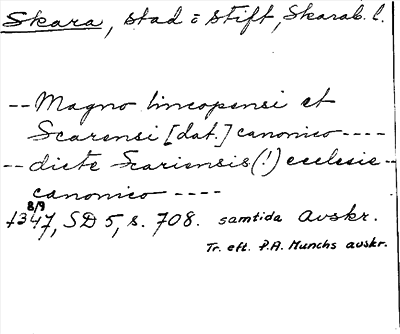 Skara, stad o stift, Skarab. l.
-- Magno lincopensi et
Scarensi [dat.] canonico ----
-- dicte Scariensis (!) ecclesie --
canonico ----
8/9
1347, SD 5, s. 708. samtida avskr.
Tr. eft. P.A. Munchs avskr.